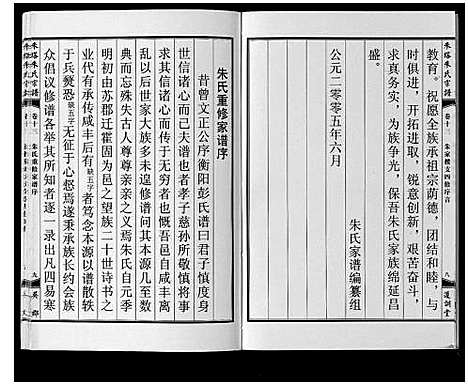 教育。祝愿全族承祖宗荫德，团结和睦，与
时俱进，开拓进取，锐意创新，艰苦奋斗，
求真务实，为族争光，保吾朱氏家族绵延昌
盛。
朱氏家谱编纂组
公元二零零五年六月
朱氏重修家谱序
昔曾文正公序衡阳彭氏谱曰君子慎度身
世信诸心而于己夫谱也者孝子慈孙所敬慎将事
求其信诸心而传于族姓者也吾邑自咸丰离
乱以后世家大族多未遑修谱问其本源几至数
典而忘殊失古人尊尊亲亲之义焉朱氏自元季
明初由苏郡迁霍固为邑之望族二十世诗书之
业代有承传咸丰后有缺五字者笃念本源以谱散轶
于兵燹惄缺五字无征于心惄焉遂秉承族长约会族
众倡议修谱各举其所知者逐一录出凡四易寒
朱塔朱氏宗谱
卷十三
朱氏重修家谱序
九